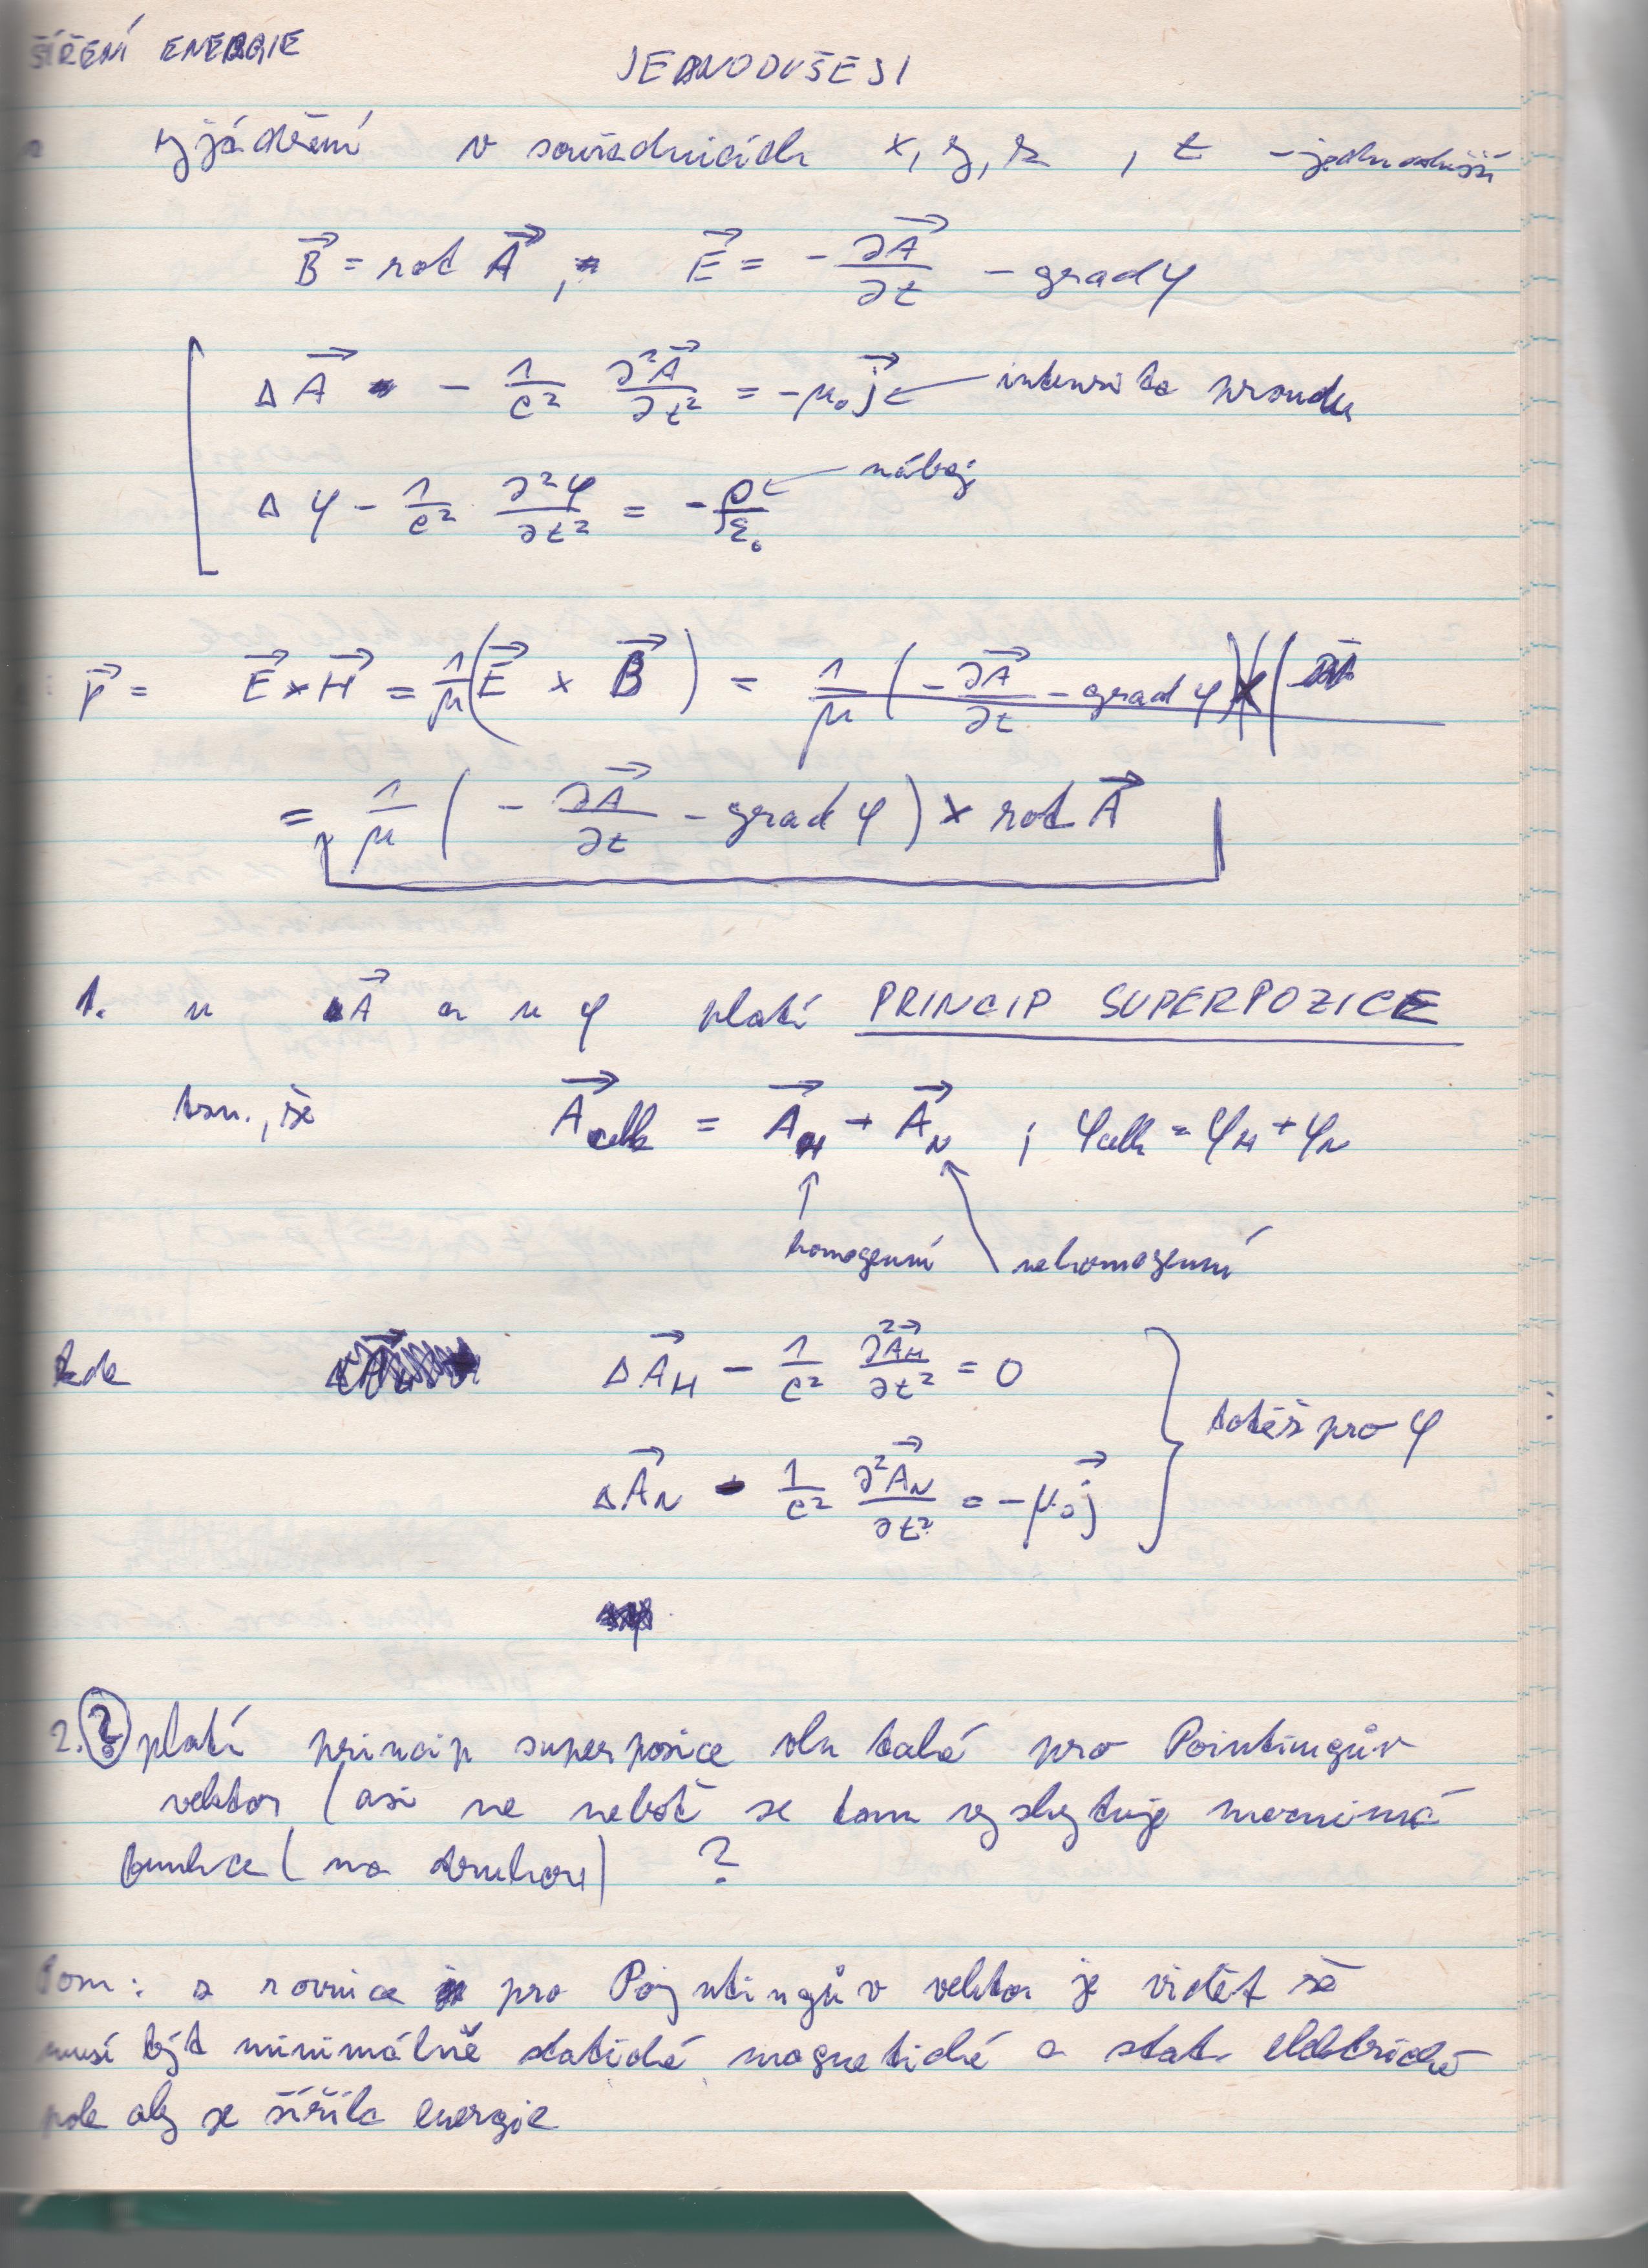 ŠÍŘENÍ ENERGIE
JEDNODUŠEJI
vyjádření v souřadnicích x, y, z , t - jednodušší
B⃗ = rot A⃗ , E⃗ = - ∂A⃗/∂t - grad φ
ΔA⃗ - 1/c² ∂²A⃗/∂t² = -μ₀ j⃗ ← intenzita proudu
Δφ - 1/c² ∂²φ/∂t² = - ρ/ε₀ ← náboj
p⃗ = E⃗ × H⃗ = 1/μ (E⃗ × B⃗) = 1/μ (- ∂A⃗/∂t - grad φ) × (
= 1/μ ( - ∂A⃗/∂t - grad φ ) × rot A⃗
1. u A⃗ a u φ platí PRINCIP SUPERPOZICE
tzn., že A⃗celk = A⃗H + A⃗N ; φcelk = φH + φN
homogenní nehomogenní
kde ΔA⃗H - 1/c² ∂²A⃗H/∂t² = 0
totéž pro φ
ΔA⃗N - 1/c² ∂²A⃗N/∂t² = -μ₀ j⃗
2. ? platí princip superpozice vln také pro Pointingův
vektor (asi ne neboť se tam vyskytuje mocninná
funkce (na druhou) ?
Pozn: z rovnice pro Poyntingův vektor je vidět že
musí být minimálně statické magnetické a stat. elektrické
pole aby se šířila energie